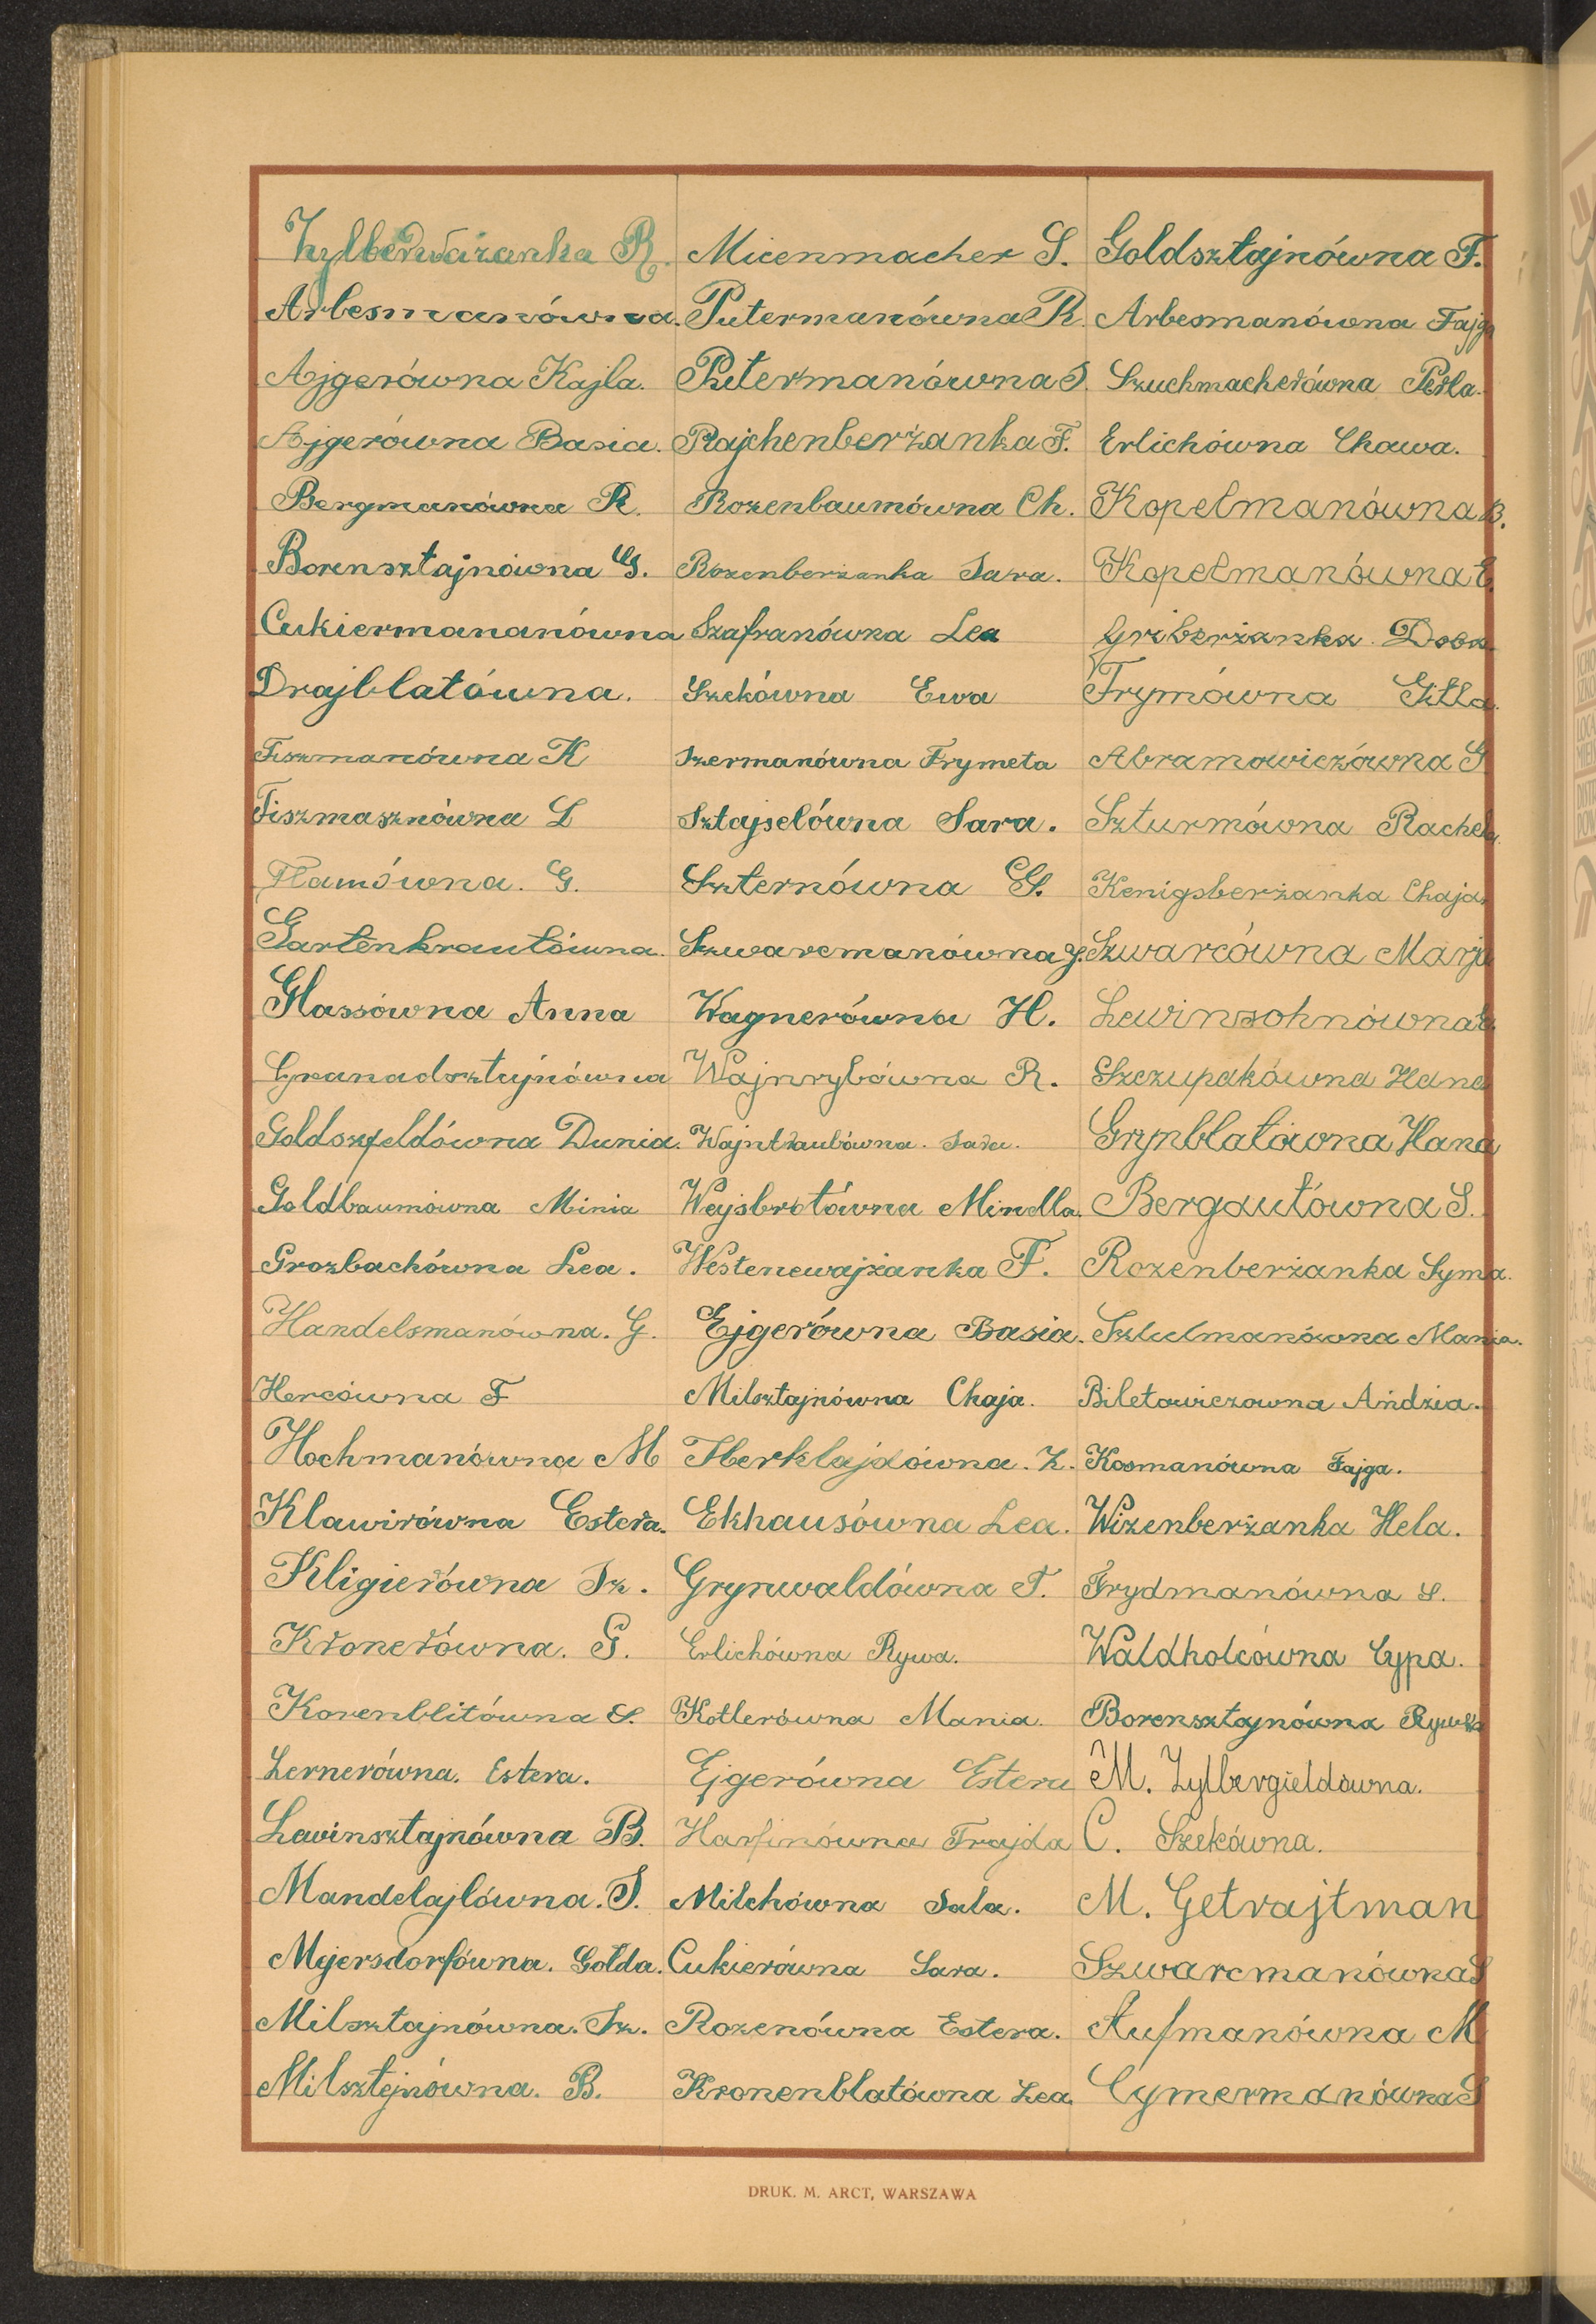 Zylberważanka R. Micenmacher S. Goldsztajnówna F.
Arbesmanówna. Putermanówna R. Arbesmanówna Fajga
Ajgerówna Kajla. Putermanówna S. Szuchmacherówna Perla.
Ajgerówna Basia. Rajchenberżanka F. Erlichówna Chawa.
Bergmanówna R. Rozenbaumówna Ch. Kopelmanówna B.
Borensztajnówna G. Rozenberżanka Sara. Kopelmanówna E.
Cukiermananówna Szafranówna Lea Griberżanka Doba
Drajblatówna. Szekówna Ewa Frymówna Gitla.
Fiszmanówna K Szermanówna Frymeta Abramowiczówna G
Fiszmasznówna L Sztajselówna Sara. Szturmówna Rachela.
Flamówna. G. Szternówna G. Kenigsberżanka Chaja.
Gartenkrautówna. Szwarcmanówna J. Szwarcówna Marja
Glassówna Anna Wagnerówna H. Lewinsohnówna
Granadsztajnówna Wajnrybówna R. Szczupakówna Hana
Goldszfeldówna Dunia. Wajntraubówna. Sara. Grynblatówna Hana
Goldbaumówna Minia Wejsbrotówna Mindla. Bergautówna S.
Grozbachówna Lea. Westenewajżanka F. Rozenberżanka Syma.
Handelsmanówna. G. Ejgerówna Basia. Szulmanówna Mania.
Hercówna F Milsztajnówna Chaja. Biletowiczowna Ańdzia.
Hochmanówna M Iberklajdówna. Z. Kosmanówna Fajga.
Klawirówna Estera. Ekhausówna Lea. Wizenberżanka Hela.
Kligierówna Sz. Grynwaldówna F. Frydmanówna S.
Kronerówna. G. Erlichówna Rywa. Waldholcówna Cypa.
Korenblitówna S. Kotlerówna Mania. Borensztajnówna Rywka
Lernerówna. Estera. Ejgerówna Estera M. Zylbergieldówna.
Lewinsztajnówna B. Harfinówna Frajda C. Szekówna.
Mandelajlówna. S. Milchówna Sala. M. Getrajtman
Mejersdorfówna. Golda. Cukierówna Sara. Szwarcmanówna S
Milsztajnówna. Sz. Rozenówna Estera. Aufmanówna M
Milsztejnówna. B. Kronenblatówna Lea. Cymermanówna S
DRUK. M. ARCT, WARSZAWA